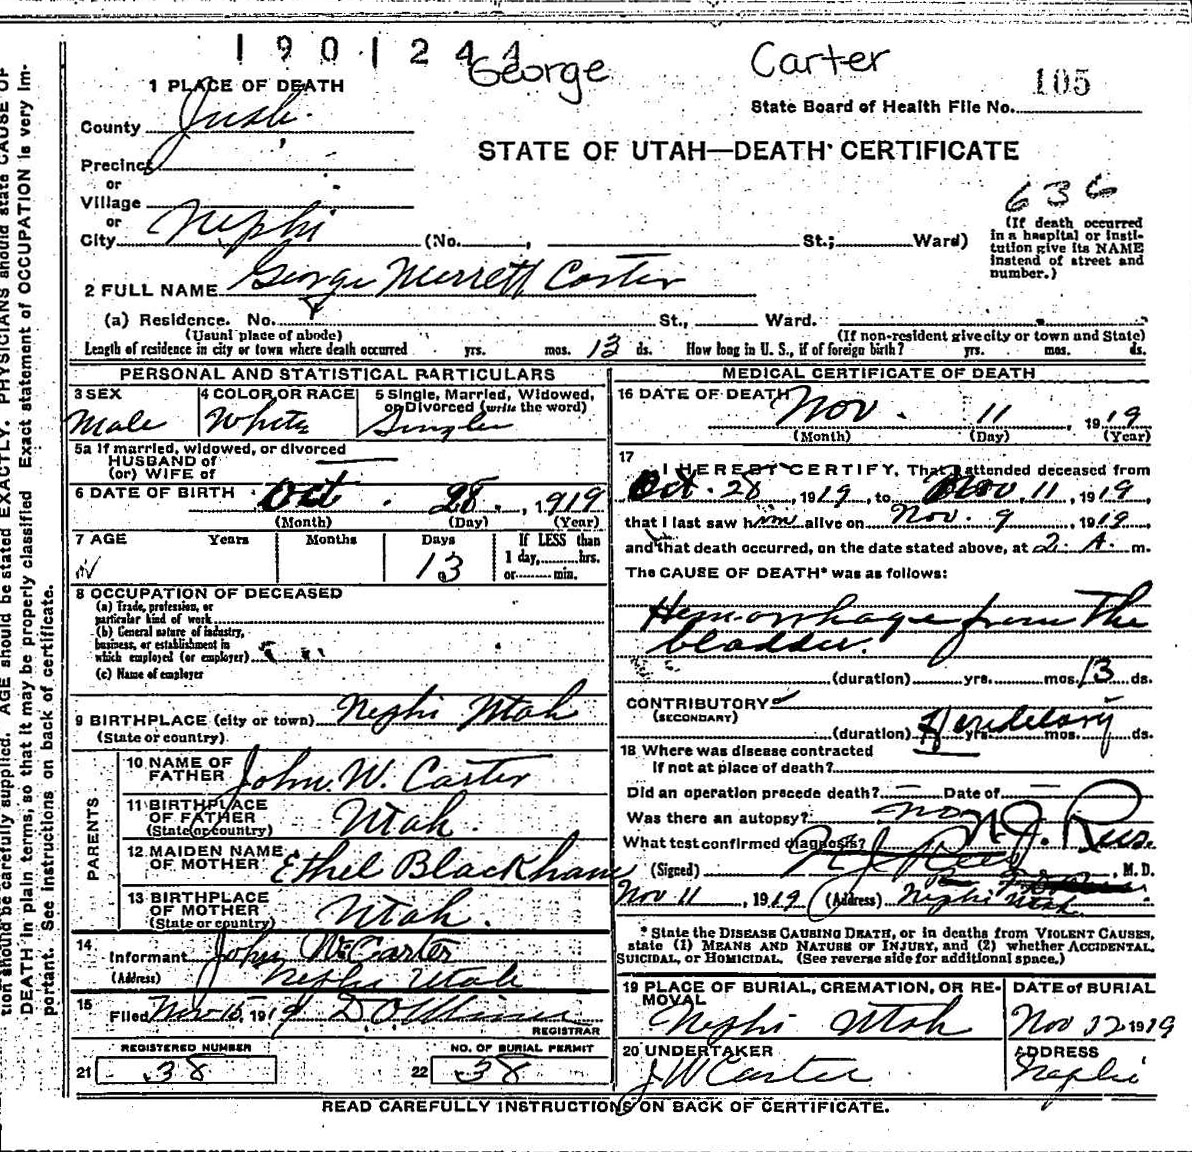 1901244
George Carter
105
1 PLACE OF DEATH
State Board of Health File No.
County Juab.
STATE OF UTAH—DEATH CERTIFICATE
Precinct
or
Village
or
City Nephi (No. , St.; Ward)
636
(If death occurred
in a hospital or insti-
tution give its NAME
instead of street and
number.)
2 FULL NAME George Merrett Carter
(a) Residence. No. St., Ward.
(Usual place of abode) (If non-resident give city or town and State)
Length of residence in city or town where death occurred yrs. mos. 13 ds. How long in U. S., if of foreign birth? yrs. mos. ds.
PERSONAL AND STATISTICAL PARTICULARS
3 SEX 4 COLOR OR RACE 5 Single, Married, Widowed,
or Divorced (write the word)
Male White Single
5a If married, widowed, or divorced
HUSBAND of
(or) WIFE of
6 DATE OF BIRTH Oct. 28., 1919
(Month) (Day) (Year)
7 AGE Years Months Days If LESS than
1 day, hrs.
or min.
13
8 OCCUPATION OF DECEASED
(a) Trade, profession, or
particular kind of work
(b) General nature of industry,
business, or establishment in
which employed (or employer)
(c) Name of employer
9 BIRTHPLACE (city or town) Nephi Utah
(State or country)
PARENTS
10 NAME OF
FATHER John. W. Carter
11 BIRTHPLACE
OF FATHER
(State or country) Utah.
12 MAIDEN NAME
OF MOTHER Ethel Blackham
13 BIRTHPLACE
OF MOTHER
(State or country) Utah.
14
Informant John W Carter
(Address) Nephi Utah
15
Filed Nov 15, 1919
REGISTRAR
REGISTERED NUMBER NO. OF BURIAL PERMIT
21 38 22 38
MEDICAL CERTIFICATE OF DEATH
16 DATE OF DEATH Nov. 11 1919
(Month) (Day) (Year)
17
I HEREBY CERTIFY, That I attended deceased from
Oct. 28, 1919, to Nov. 11, 1919,
that I last saw him alive on Nov. 9, 1919,
and that death occurred, on the date stated above, at 2. A. m.
The CAUSE OF DEATH* was as follows:
Hemorrhage from The
bladder.
(duration) yrs. mos. 13 ds.
CONTRIBUTORY
(SECONDARY)
Heredetary
(duration) yrs. mos. ds.
18 Where was disease contracted
If not at place of death?
Did an operation precede death? — Date of —
Was there an autopsy? no
What test confirmed diagnosis? N J. Rees.
(Signed) N J Rees, M. D.
Nov 11, 1919 (Address) Nephi Utah
* State the DISEASE CAUSING DEATH, or in deaths from VIOLENT CAUSES,
state (1) MEANS AND NATURE OF INJURY, and (2) whether ACCIDENTAL,
SUICIDAL, or HOMICIDAL. (See reverse side for additional space.)
19 PLACE OF BURIAL, CREMATION, OR RE-
MOVAL DATE of BURIAL
Nephi Utah Nov 12 1919
20 UNDERTAKER ADDRESS
J W Carter Nephi
READ CAREFULLY INSTRUCTIONS ON BACK OF CERTIFICATE.
tion should be carefully supplied. AGE should be stated EXACTLY. PHYSICIANS should state CAUSE OF
DEATH in plain terms, so that it may be properly classified. Exact statement of OCCUPATION is very im-
portant. See instructions on back of certificate.